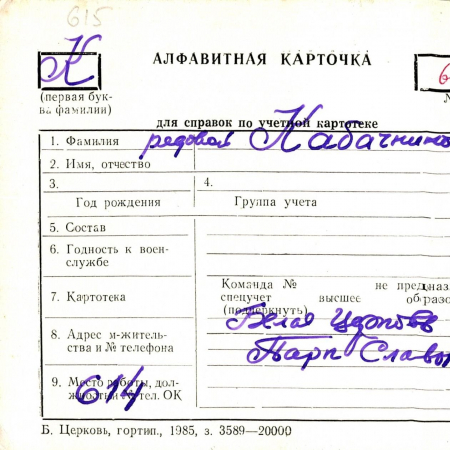 615
К
АЛФАВИТНАЯ КАРТОЧКА
(первая бук-
ва фамилии)
для справок по учетной картотеке
1. Фамилия рядовой Кабачнико
2. Имя, отчество
3.
4.
Год рождения
Группа учета
5. Состав
6. Годность к воен-
службе
7. Картотека
Команда № не предназ
спецучет высшее образо
(подчеркнуть)
8. Адрес м-житель-
ства и № телефона
Белая Церковь
Парк Славы
9. Место работы, дол-
жность и № тел. ОК
614
Б. Церковь, гортип., 1985, з. 3589—20000